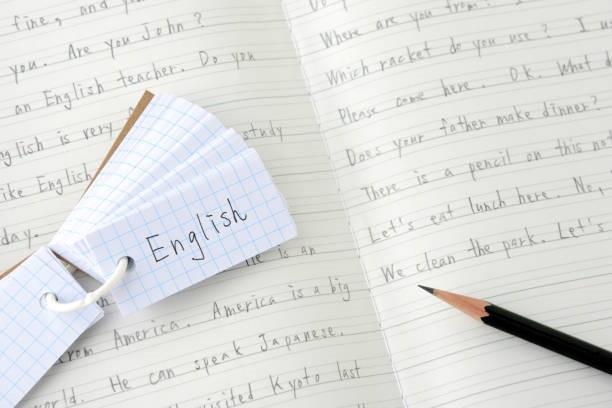 fine, and you
you. Are you John?
an English teacher. Do you
English is very study
like English
day.
He is an
from America. America is a big
world. He can speak Japanese.
visited Kyoto last
English
Do
Where are you from? I
Which racket do you use? I
Please come here. OK. What
Does your father make dinner?
There is a pencil on this
Let's eat lunch here. No,
We clean the park. Let's